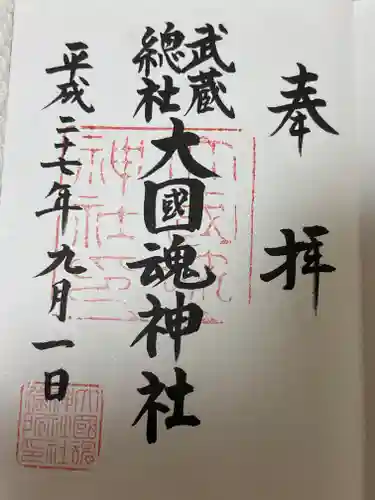 奉拝
武蔵
總社
大國魂神社
平成二十七年九月一日